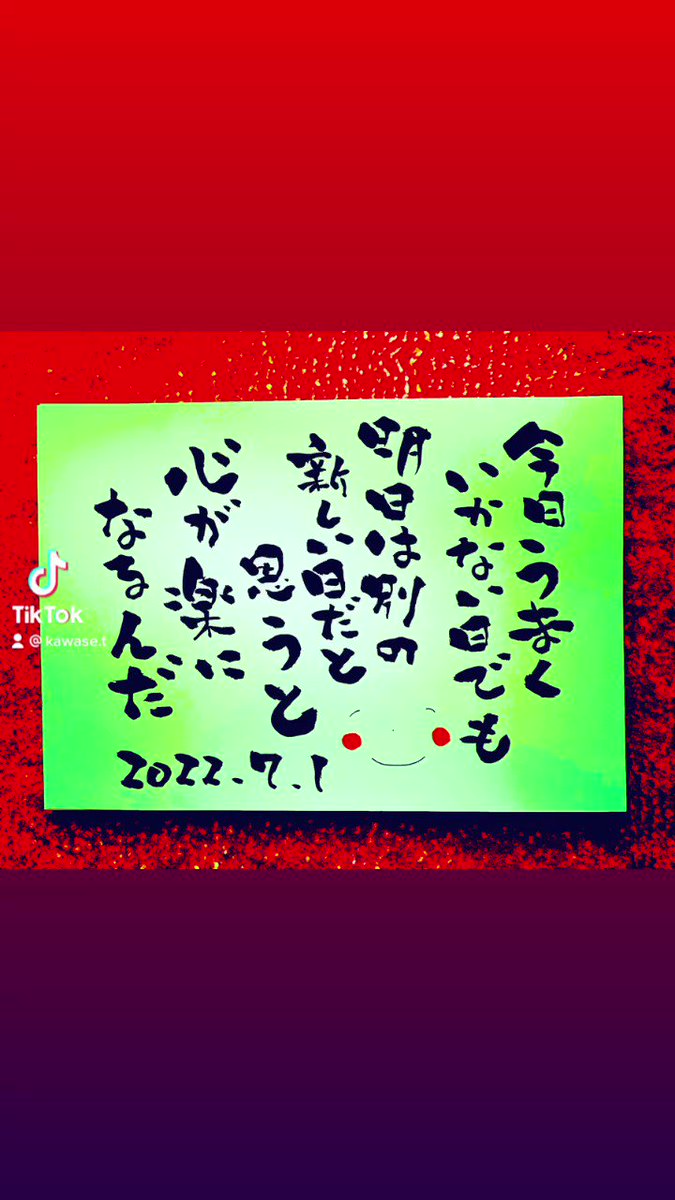 今日うまく
いかない日でも
明日は別の
新しい日だと
思うと
心が楽に
なるんだ
2022.7.1
TikTok
@kawase.t